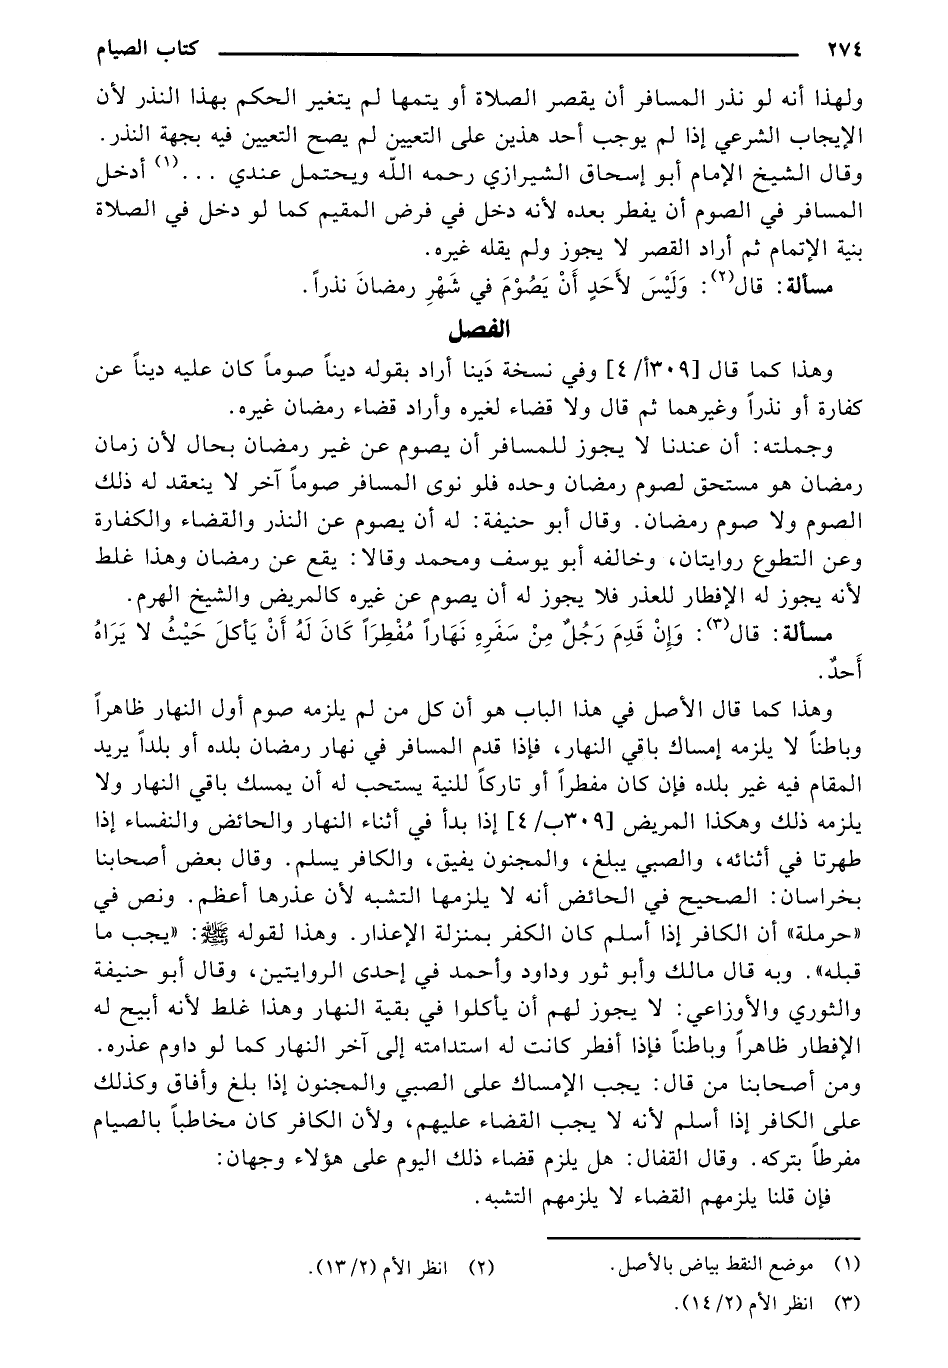 ٢٧٤ كتاب الصيام
ولهذا أنه لو نذر المسافر أن يقصر الصلاة أو يتمها لم يتغير الحكم بهذا النذر لأن
الإيجاب الشرعي إذا لم يوجب أحد هذين على التعيين لم يصح التعيين فيه بجهة النذر.
وقال الشيخ الإمام أبو إسحاق الشيرازي رحمه الله ويحتمل عندي ...(١) أدخل
المسافر في الصوم أن يفطر بعده لأنه دخل في فرض المقيم كما لو دخل في الصلاة
بنية الإتمام ثم أراد القصر لا يجوز ولم يقله غيره.
مسألة: قال(٢): وَلَيْسَ لأَحَدٍ أَنْ يَصُوْمَ في شَهْرِ رمضانَ نذراً.
الفصل
وهذا كما قال [٣٠٩أ/ ٤] وفي نسخة دَينا أراد بقوله ديناً صوماً كان عليه ديناً عن
كفارة أو نذراً وغيرهما ثم قال ولا قضاء لغيره وأراد قضاء رمضان غيره.
وجملته: أن عندنا لا يجوز للمسافر أن يصوم عن غير رمضان بحال لأن زمان
رمضان هو مستحق لصوم رمضان وحده فلو نوى المسافر صوماً آخر لا ينعقد له ذلك
الصوم ولا صوم رمضان. وقال أبو حنيفة: له أن يصوم عن النذر والقضاء والكفارة
وعن التطوع روايتان، وخالفه أبو يوسف ومحمد وقالا: يقع عن رمضان وهذا غلط
لأنه يجوز له الإفطار للعذر فلا يجوز له أن يصوم عن غيره كالمريض والشيخ الهرم.
مسألة: قال(٣): وَإِنْ قَدِمَ رَجُلٌ مِنْ سَفَرِهِ نَهَاراً مُفْطِرَاً كَانَ لَهُ أَنْ يَأكلَ حَيْثُ لا يَرَاهُ
أَحدٌ.
وهذا كما قال الأصل في هذا الباب هو أن كل من لم يلزمه صوم أول النهار ظاهراً
وباطناً لا يلزمه إمساك باقي النهار، فإذا قدم المسافر في نهار رمضان بلده أو بلداً يريد
المقام فيه غير بلده فإن كان مفطراً أو تاركاً للنية يستحب له أن يمسك باقي النهار ولا
يلزمه ذلك وهكذا المريض [٣٠٩ب/ ٤] إذا بدأ في أثناء النهار والحائض والنفساء إذا
طهرتا في أثنائه، والصبي يبلغ، والمجنون يفيق، والكافر يسلم. وقال بعض أصحابنا
بخراسان: الصحيح في الحائض أنه لا يلزمها التشبه لأن عذرها أعظم. ونص في
«حرملة» أن الكافر إذا أسلم كان الكفر بمنزلة الإعذار. وهذا لقوله ﷺ: «يجب ما
قبله». وبه قال مالك وأبو ثور وداود وأحمد في إحدى الروايتين، وقال أبو حنيفة
والثوري والأوزاعي: لا يجوز لهم أن يأكلوا في بقية النهار وهذا غلط لأنه أبيح له
الإفطار ظاهراً وباطناً فإذا أفطر كانت له استدامته إلى آخر النهار كما لو داوم عذره.
ومن أصحابنا من قال: يجب الإمساك على الصبي والمجنون إذا بلغ وأفاق وكذلك
على الكافر إذا أسلم لأنه لا يجب القضاء عليهم، ولأن الكافر كان مخاطباً بالصيام
مفرطاً بتركه. وقال القفال: هل يلزم قضاء ذلك اليوم على هؤلاء وجهان:
فإن قلنا يلزمهم القضاء لا يلزمهم التشبه.
(١) موضع النقط بياض بالأصل. (٢) انظر الأم (١٣/٢).
(٣) انظر الأم (١٤/٢).